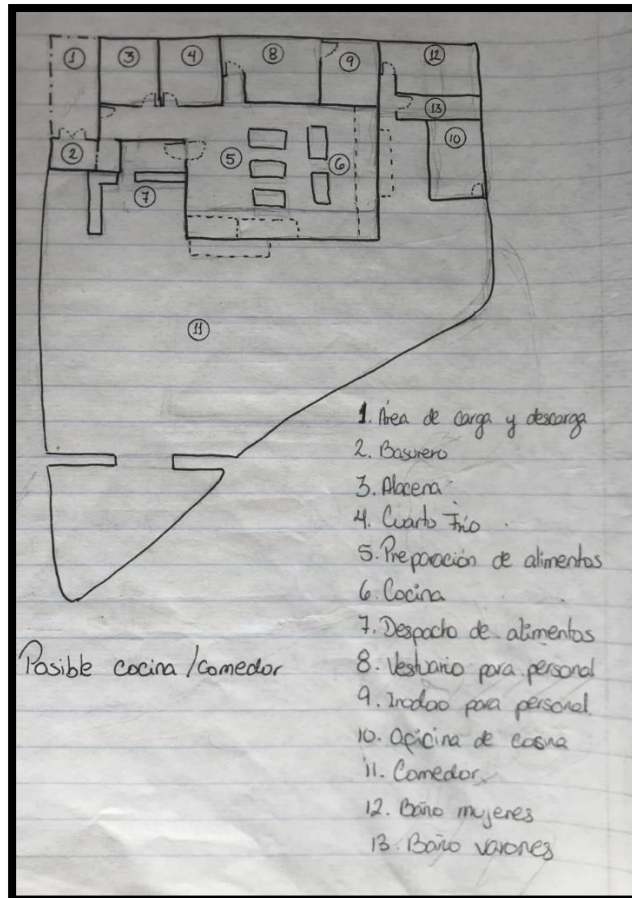 1
3
4
8
9
12
13
10
2
5
6
7
11
1. Área de carga y descarga
2. Basurero
3. Alacena
4. Cuarto Frío
5. Preparación de alimentos
6. Cocina
7. Despacho de alimentos
8. Vestuario para personal
9. para personal
10. Oficina de cocina
11. Comedor
12. Baño mujeres
13. Baño varones
Posible cocina/comedor